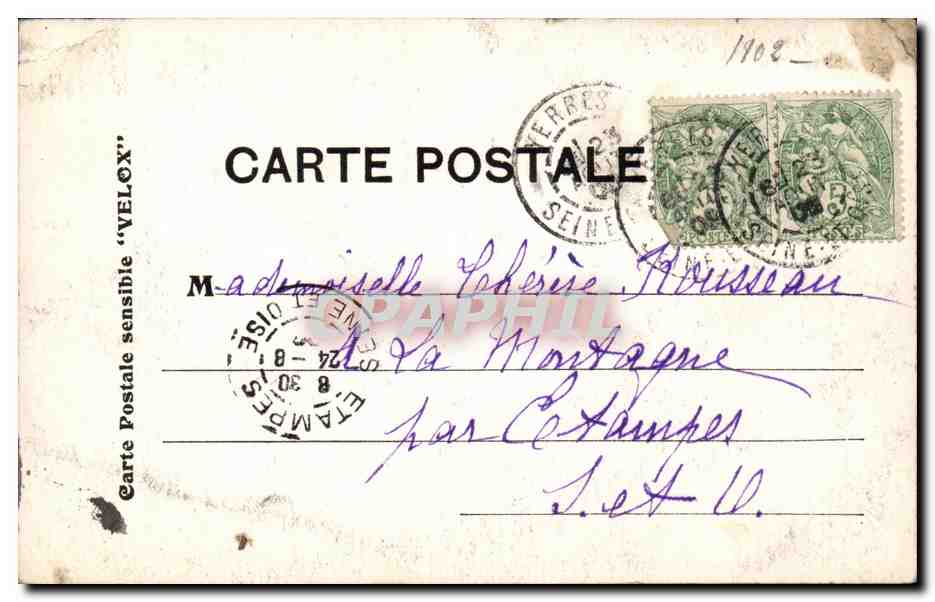 1902 _
CARTE POSTALE
Carte Postale sensible "VELOX"
YERRES
23
SEINE
Mademoiselle Thérèse Rousseau
A La Montagne
par Etampes
S. et O.
ÉTAMPES
SEINE ET OISE
8 30
24 - 8
CPAPHIL